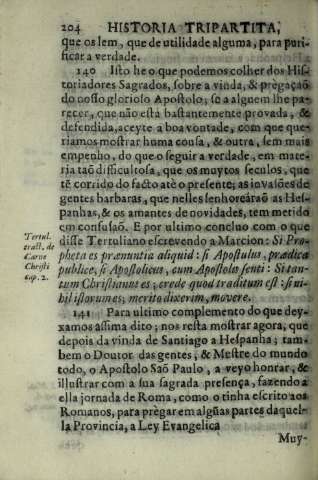 204 HISTORIA TRIPARTITA,
que os lem, que de utilidade alguma, para puri-
ficar a verdade.
140 Isto he o que podemos colher dos His-
toriadores Sagrados, sobre a vinda, & prègaçaõ
do nosso glorioso Apostolo, se a alguem lhe pa-
recer, que naõ está bastantemente provada, &
defendida, aceyte a boa vontade, com que que-
riamos mostrar huma cousa, & outra, sem mais
empenho, do que o seguir a verdade, em mate-
ria taõ difficultosa, que os muytos seculos, que
tẽ corrido do facto atè o presente; as invasões de
gentes barbaras, que nelles senhoreáraõ as Hes-
panhas, & os amantes de novidades, tem metido
em confusaõ. E por ultimo concluo com o que
disse Tertuliano escrevendo a Marcion: Si Pro-
pheta es præmuntia aliquid: si Apostulus, prædica
publice, si Apostolicus, cum Apostolis senti: Si tan-
tum Christianus es; crede quod traditum est: si ni-
hil istorum es; merito dixerim, movere.
Tertul.
tract. de
Carne
Christi
cap. 2.
141 Para ultimo complemento do que dey-
xamos assima dito; nos resta mostrar agora, que
depois da vinda de Santiago a Hespanha; tam-
bem o Doutor das gentes, & Mestre do mundo
todo, o Apostolo Saõ Paulo, a veyo honrar, &
illustrar com a sua sagrada presença, fazendo a
ella jornada de Roma, como o tinha escrito aos
Romanos, para prègar em algũas partes daquel-
la Provincia, a Ley Evangelica
Muy-